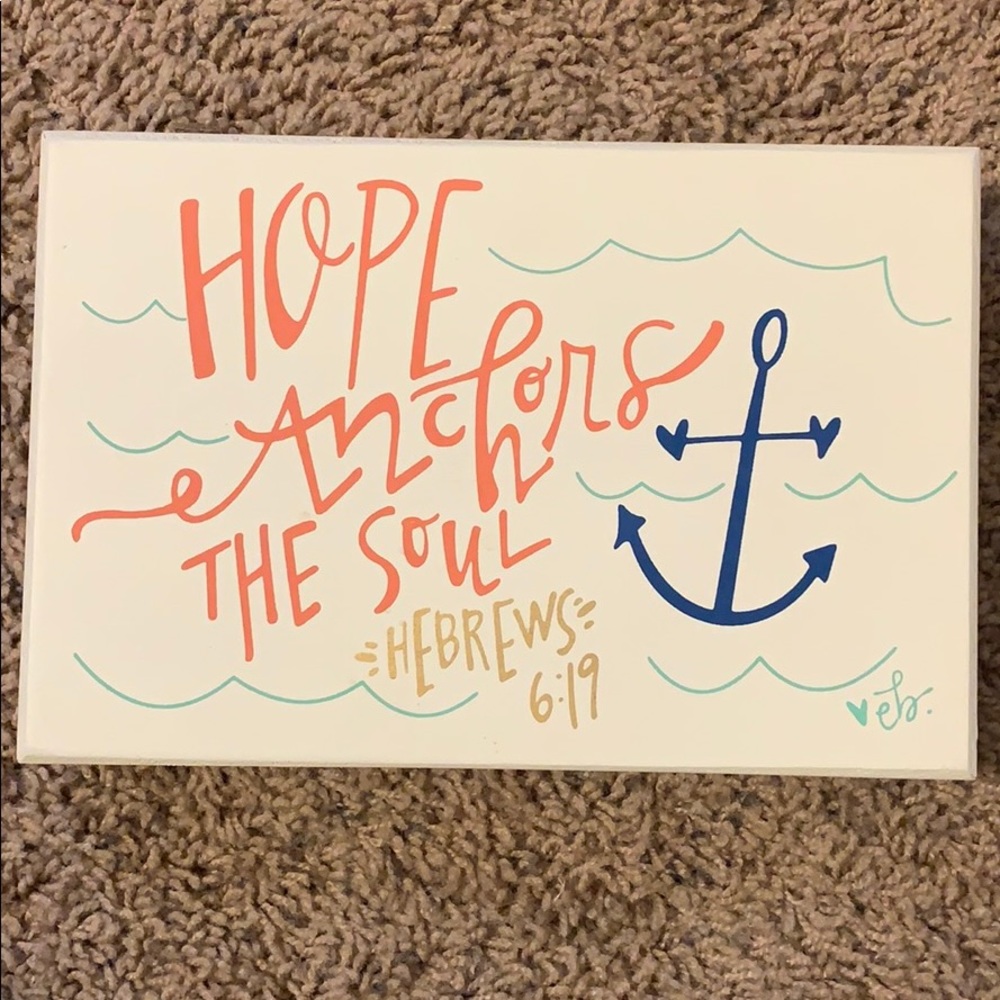 HOPE
Anchors
THE SOUL
HEBREWS
6:19
eb.